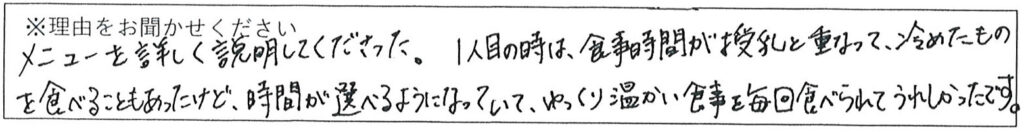 ※理由をお聞かせください
メニューを詳しく説明してくださった。 1人目の時は、食事時間が授乳と重なって、冷めたもの
を食べることもあったけど、時間が選べるようになっていて、ゆっくり温かい食事を毎回食べられてうれしかったです。